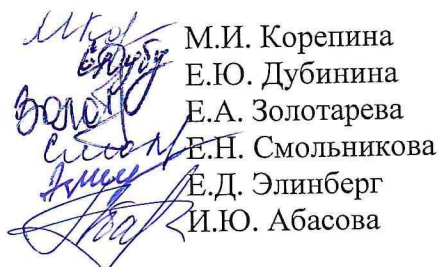 М.И. Корепина
Е.Ю. Дубинина
Е.А. Золотарева
Е.Н. Смольникова
Е.Д. Элинберг
И.Ю. Абасова